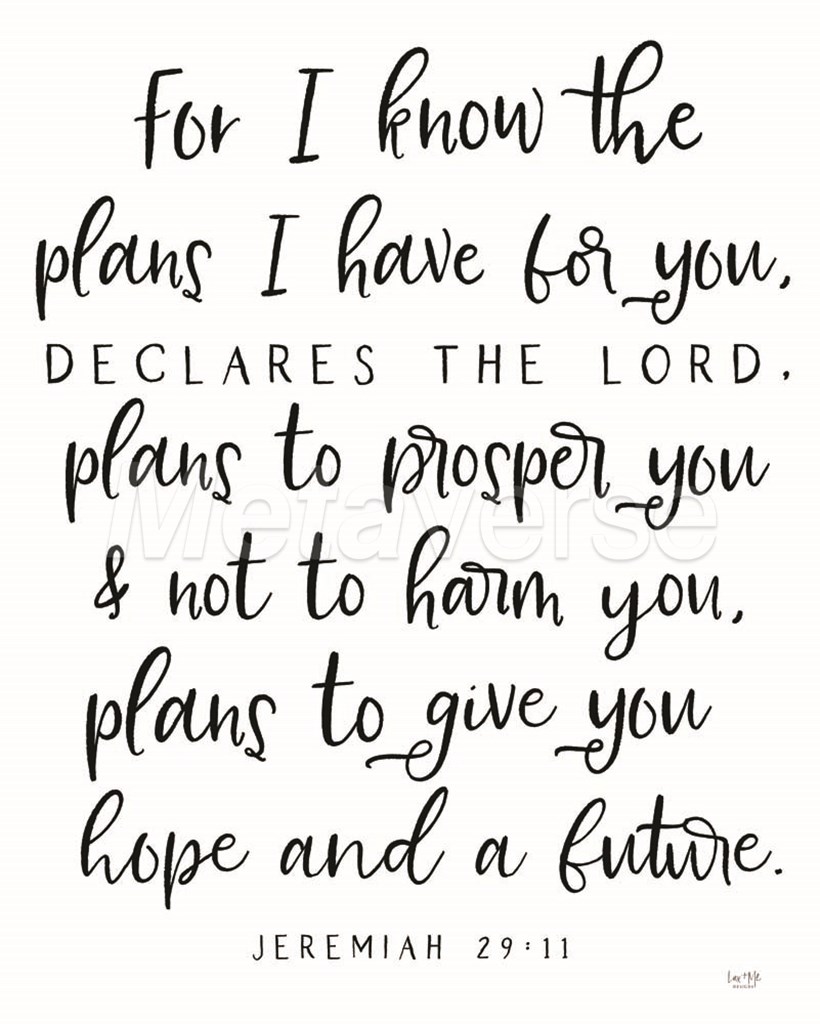 For I know the
plans I have for you,
DECLARES THE LORD,
plans to prosper you
Metaverse
& not to harm you,
plans to give you
hope and a future.
JEREMIAH 29:11
Lux + Me
DESIGNS